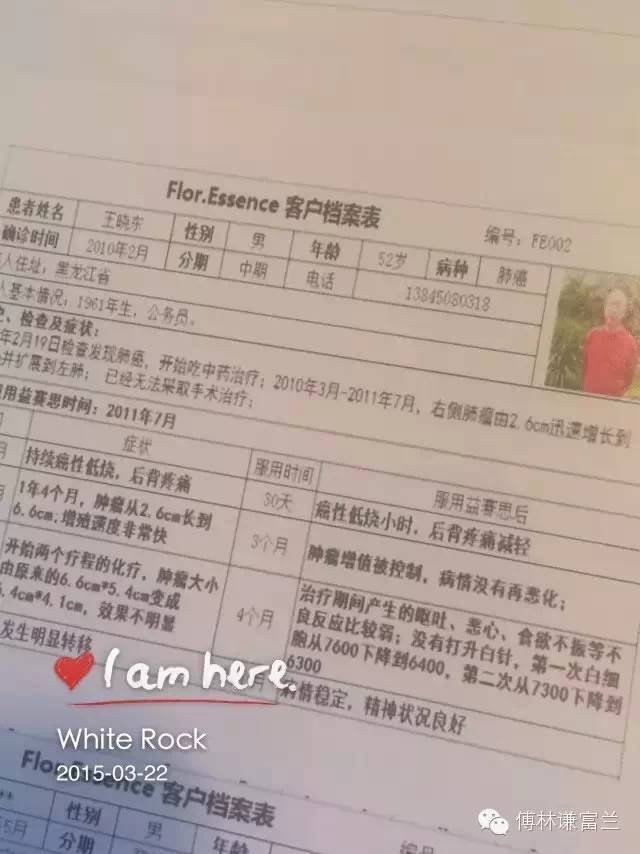 Flor.Essence 客户档案表
编号：FE002
患者姓名 王晓东 性别 男 年龄 52岁 病种 肺癌
确诊时间 2010年2月 分期 中期 电话 13845080318
人住址：黑龙江省
人基本情况：1961年生，公务员。
、检查及症状：
年2月19日检查发现肺癌，开始吃中药治疗；2010年3月-2011年7月，右侧肺瘤由2.6cm迅速增长到
并扩展到左肺； 已经无法采取手术治疗；
用益赛思时间：2011年7月
症状 服用时间 服用益赛思后
月 持续癌性低烧，后背疼痛 30天 癌性低烧小时，后背疼痛减轻
月 1年4个月，肿瘤从2.6cm长到
6.6cm,增殖速度非常快 3个月 肿瘤增值被控制，病情没有再恶化；
开始两个疗程的化疗，肿瘤大小
由原来的6.6cm*5.4cm变成
.4cm*4.1cm，效果不明显 4个月 治疗期间产生的呕吐、恶心、食欲不振等不
良反应比较弱；没有打升白针，第一次白细
胞从7600下降到6400，第二次从7300下降到
6300
发生明显转移 月 病情稳定，精神状况良好
I am here.
White Rock
2015-03-22
Flor.Essence 客户档案表
** 性别 男 编号
5月 分期
傅林谦富兰